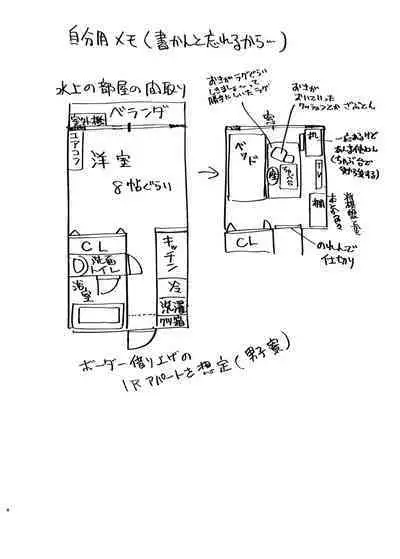 自分用メモ(書かんと忘れるから…)
水上の部屋の間取り
ベランダ
室外機
エアコン
洋室
8帖ぐらい
CL
洗面
トイレ
浴室
キッチン
冷
洗濯
クツ箱
おきがラグぐらい
勝手にしいたラグ
おきが
おいていった
クッションとか ざぶとん
窓
ベッド
座
ちゃぶ台
机
TV
棚
一応あるけど
あんま使わん
(ちゃぶ台で
CL
のれんで
仕切り
ボーダー借り上げの
1Rアパートを想定(男子寮)